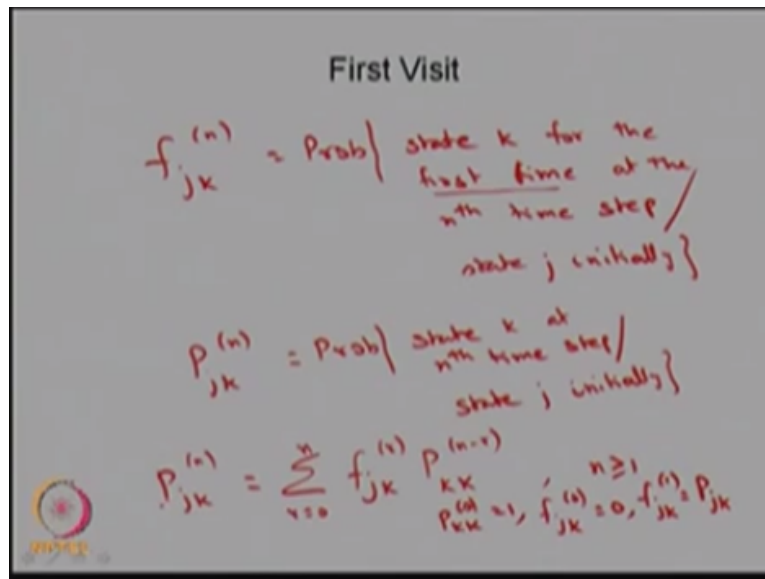 First Visit
f_{jk}^{(n)} = Prob{ state k for the
first time at the
n^{th} time step /
state j initially }
P_{jk}^{(n)} = Prob{ state k at
n^{th} time step /
state j initially }
P_{jk}^{(n)} = \sum_{r=0}^{n} f_{jk}^{(r)} P_{kk}^{(n-r)} , n ≥ 1
P_{kk}^{(0)} = 1, f_{jk}^{(0)} = 0, f_{jk}^{(1)} = P_{jk}
NPTEL